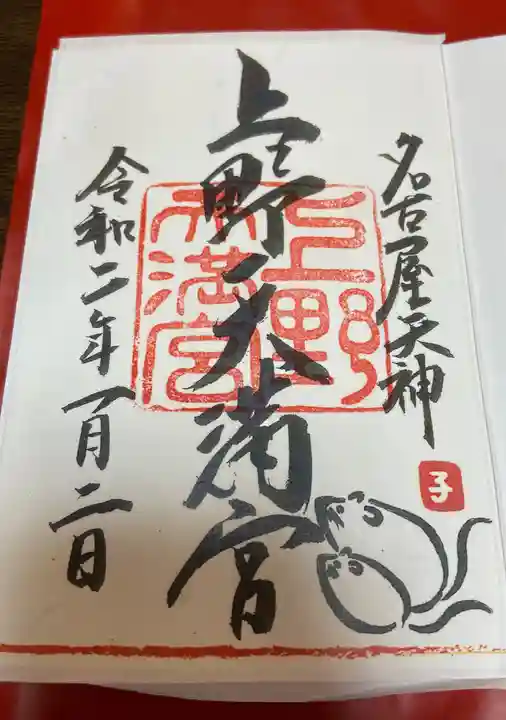 名古屋天神
上野天満宮
上野
天満宮
令和二年一月二日
子